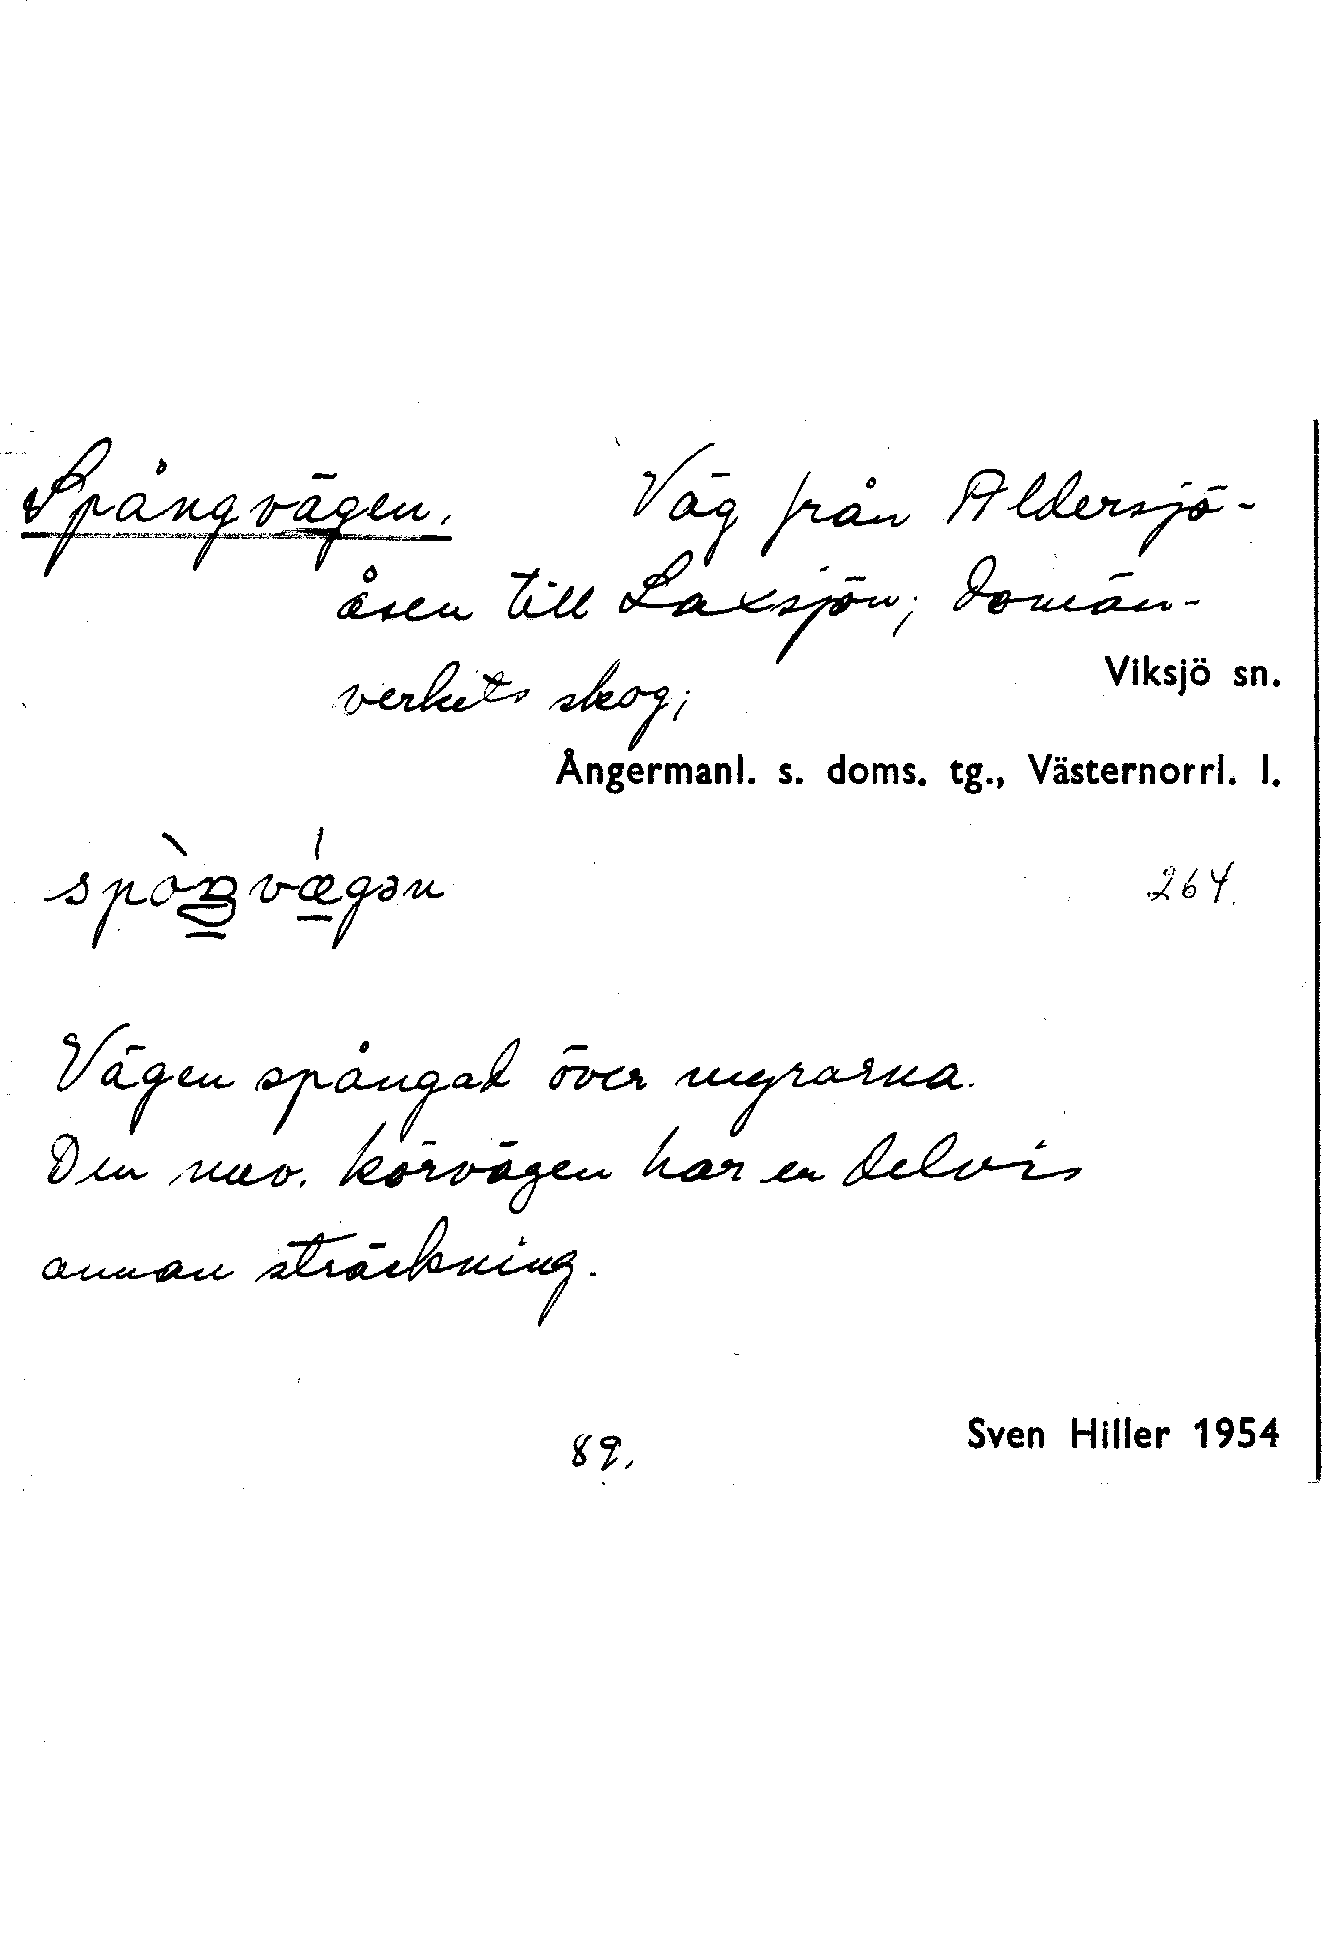 Spångvägen. Väg från Aldersjö-
åsen till Laxsjön; domän-
verkets skog;
Viksjö sn.
Ångermanl. s. doms. tg., Västernorrl. l.
spòŋvǽgən 264.
Vägen spångad över myrarna.
Den nuv. körvägen har en delvis
annan sträckning.
89. Sven Hiller 1954